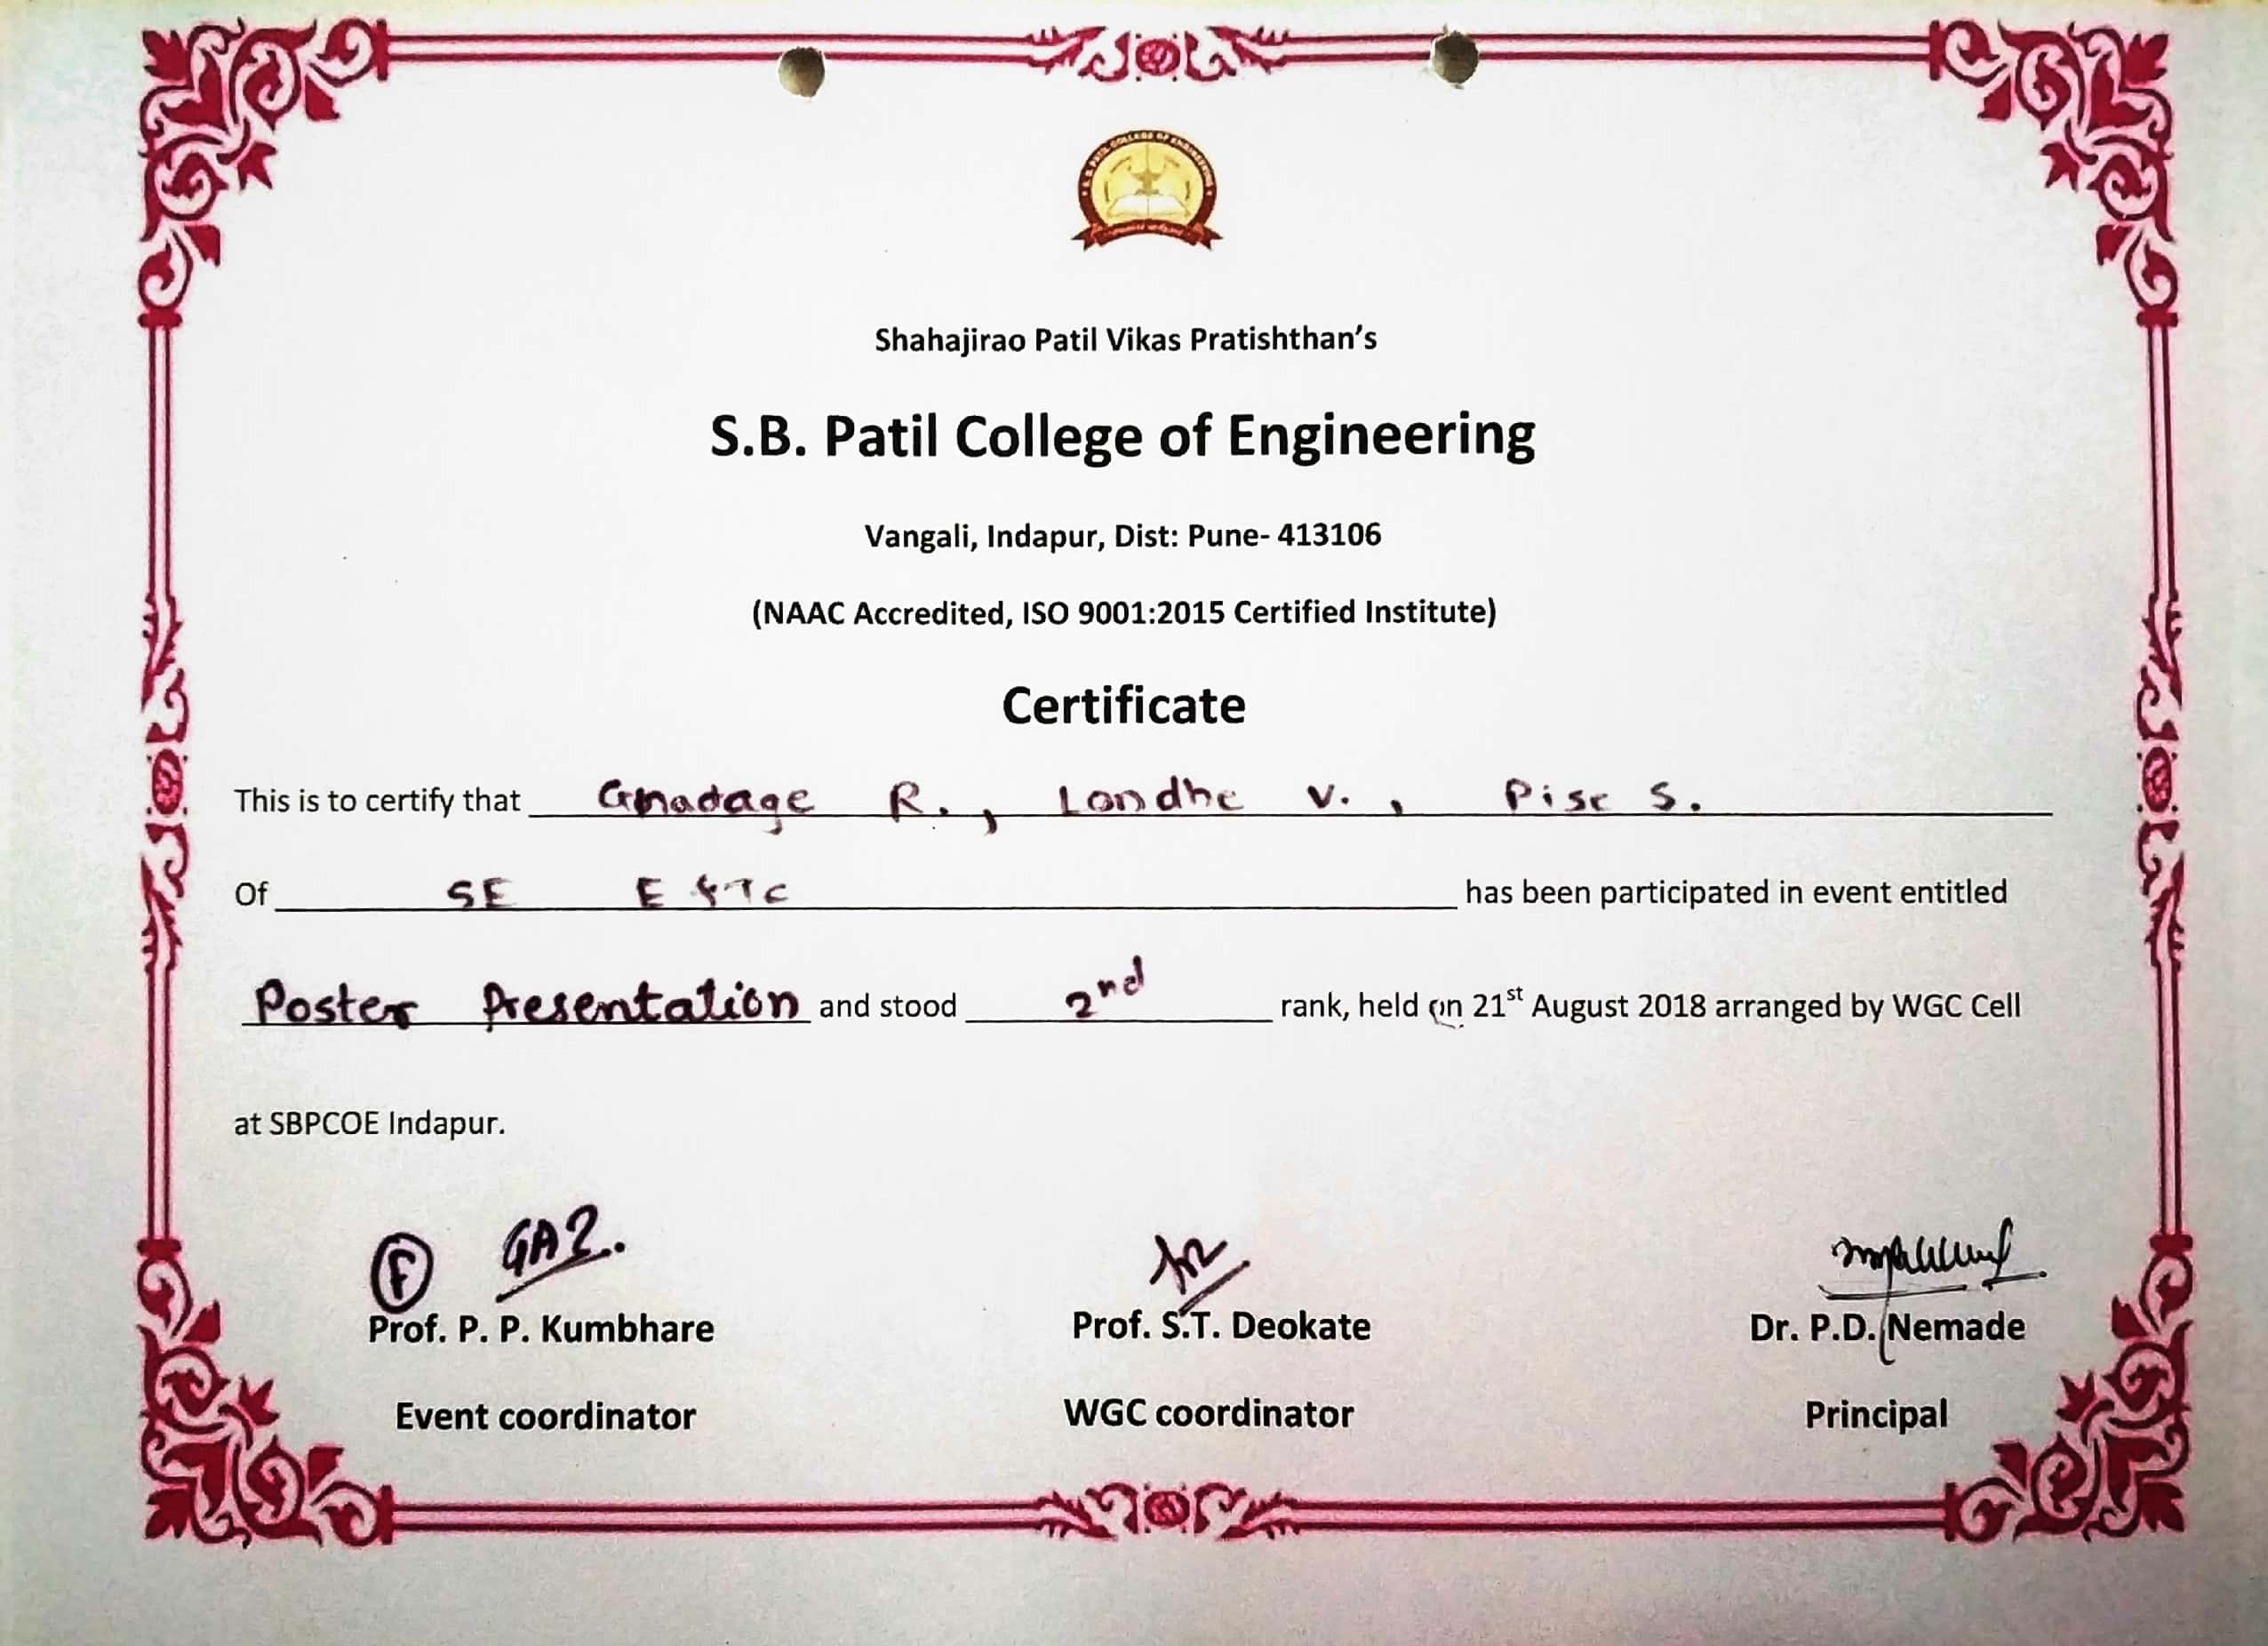 S. B. PATIL COLLEGE OF ENGINEERING
Shahajirao Patil Vikas Pratishthan's
S.B. Patil College of Engineering
Vangali, Indapur, Dist: Pune- 413106
(NAAC Accredited, ISO 9001:2015 Certified Institute)
Certificate
This is to certify that Ghadage R., Londhe V., Pise S.
Of SE E&TC has been participated in event entitled
Poster Presentation and stood 2nd rank, held on 21st August 2018 arranged by WGC Cell
at SBPCOE Indapur.
F
Prof. P. P. Kumbhare Prof. S.T. Deokate Dr. P.D. Nemade
Event coordinator WGC coordinator Principal